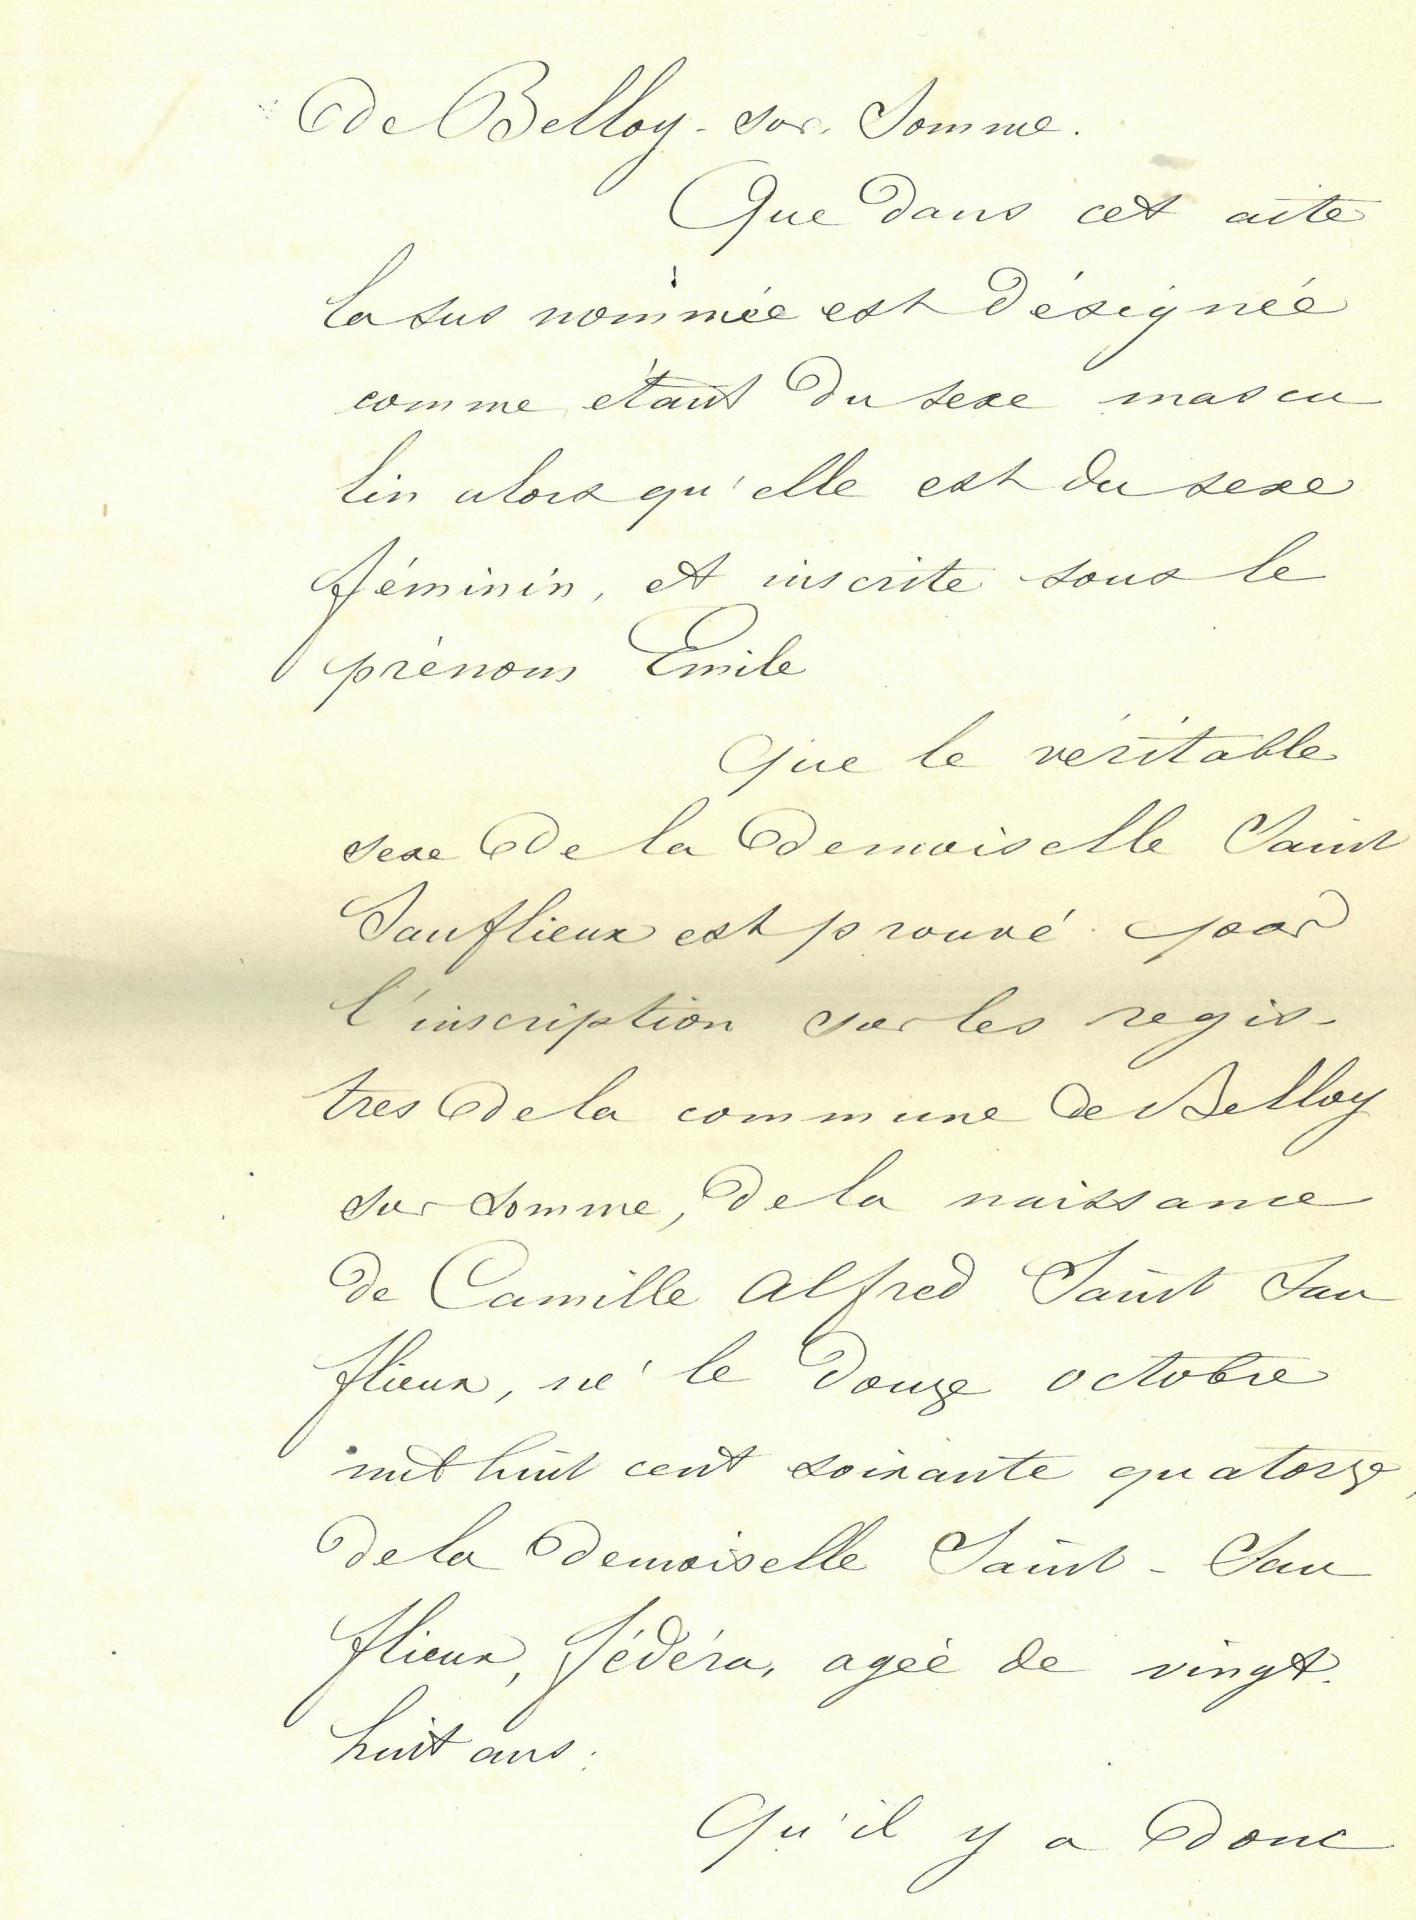 de Belloy-sur-Somme.
Que dans cet acte
la sus nommée est désignée
comme étant du sexe mascu
lin alors qu'elle est du sexe
féminin, et inscrite sous le
prénom Emile
Que le véritable
sexe de la demoiselle Saint
Sauflieux est prouvé par
l'inscription sur les regis-
tres de la commune de Belloy
sur Somme, de la naissance
de Camille Alfred Saint Sau
flieux, né le douze octobre
mil huit cent soixante quatorze,
de la demoiselle Saint-Sau
flieux, Fédéra, agée de vingt
huit ans.
Qu'il y a donc